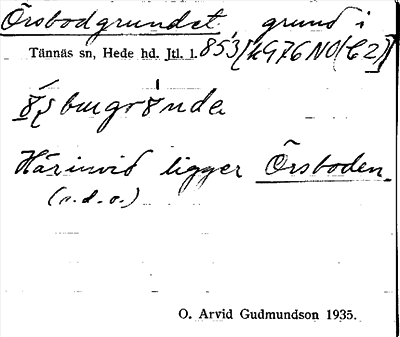 Örsbodgrundet, grund i
Tännäs sn, Hede hd. Jtl. l. 853 [HG76NO(C2)]
Härinvid ligger Örsboden.
(s.d.o.)
O. Arvid Gudmundson 1935.